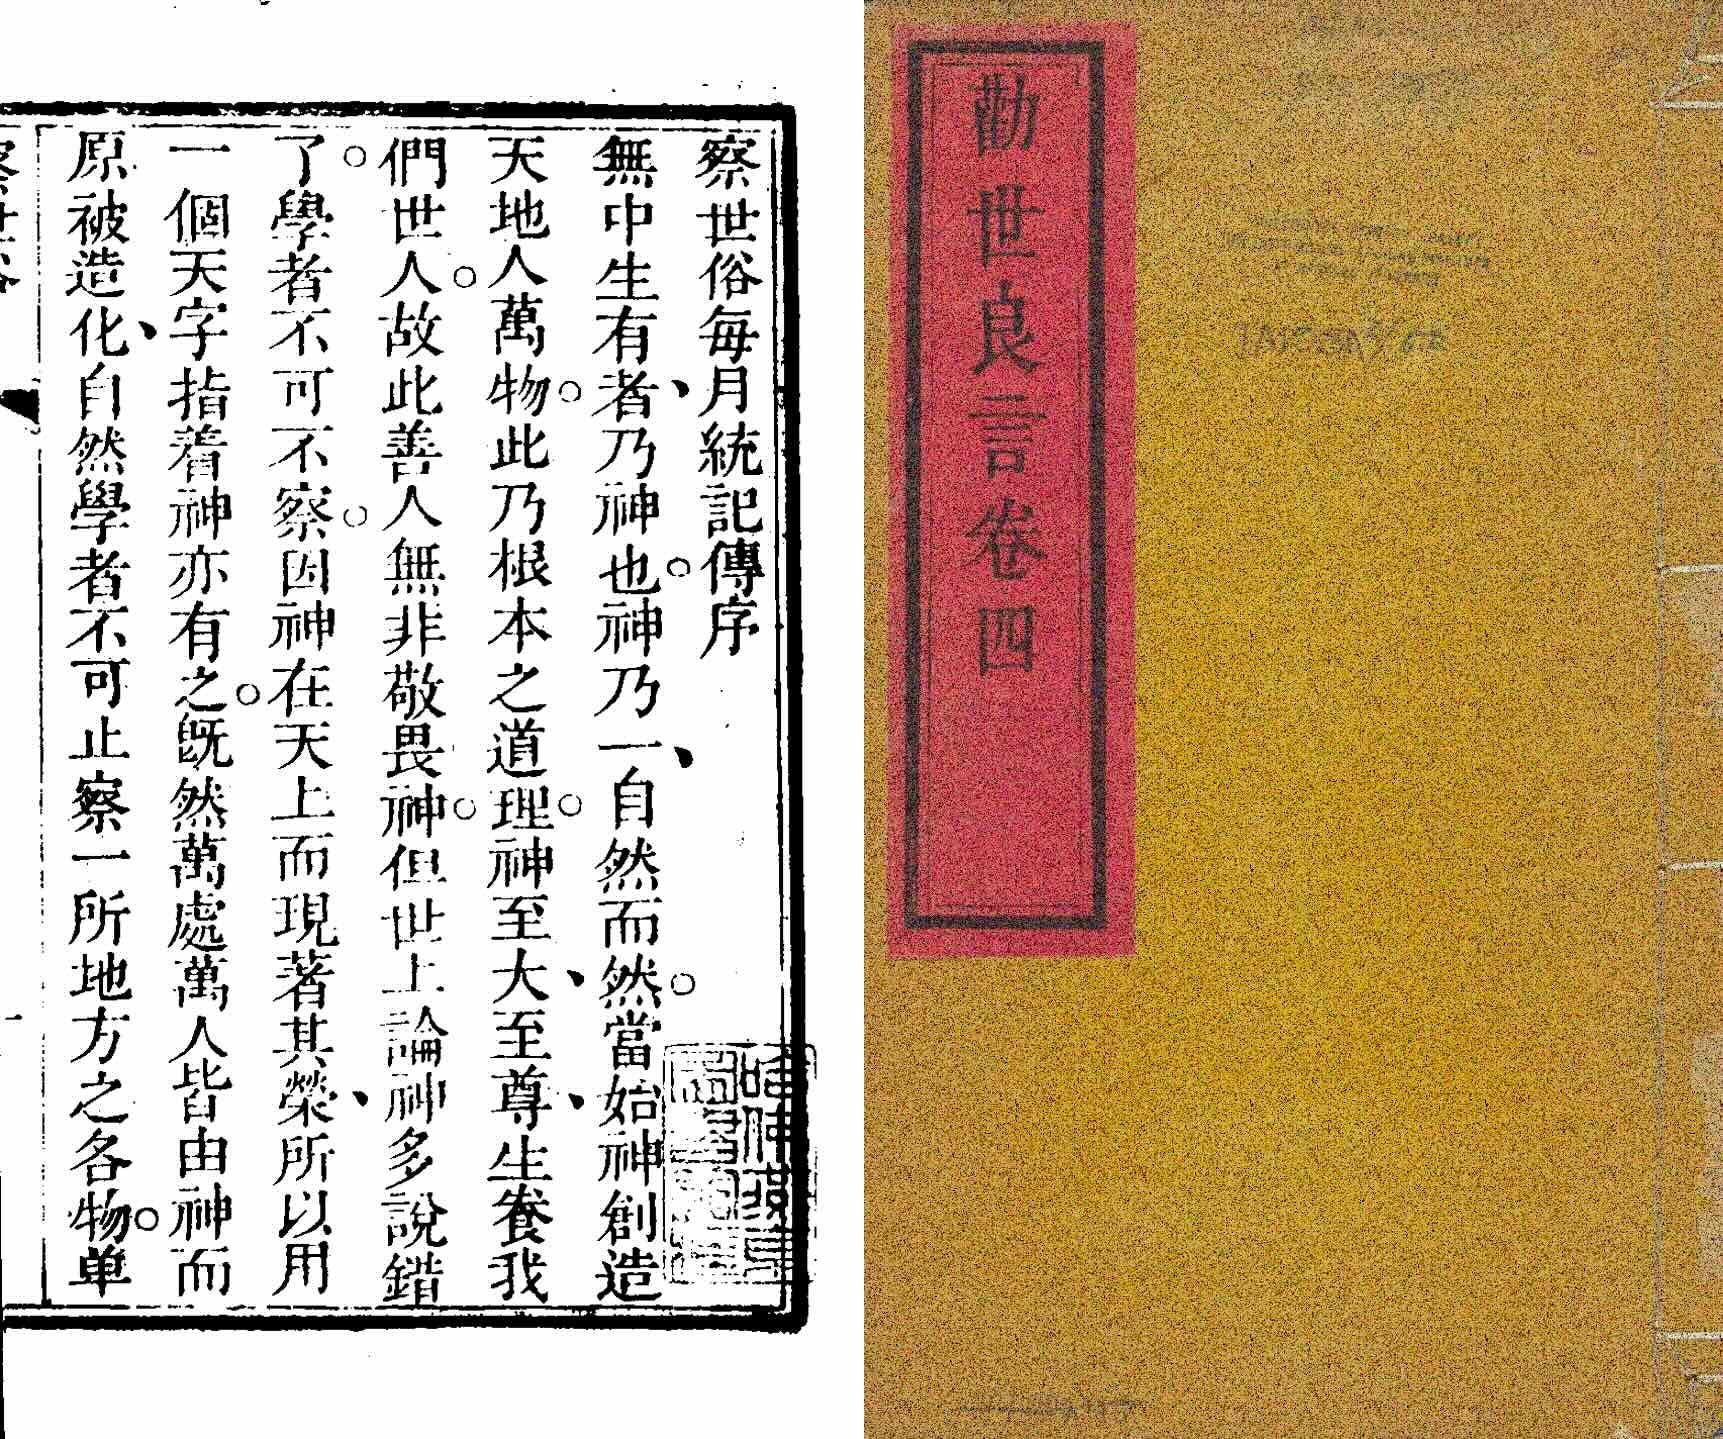 察世俗每月統記傳序
無中生有者、乃神也。神乃一、自然而然。當始神創造
天地人萬物。此乃根本之道理。神至大、至尊、生養我
們世人。故此善人無非敬畏神。但世上論神多說錯
了。學者不可不察。因神在天上而現著其榮、所以用
一個天字指着神亦有之。旣然萬處萬人皆由神而
原被造化、自然學者不可止察一所地方之各物。单
勸世良言卷四